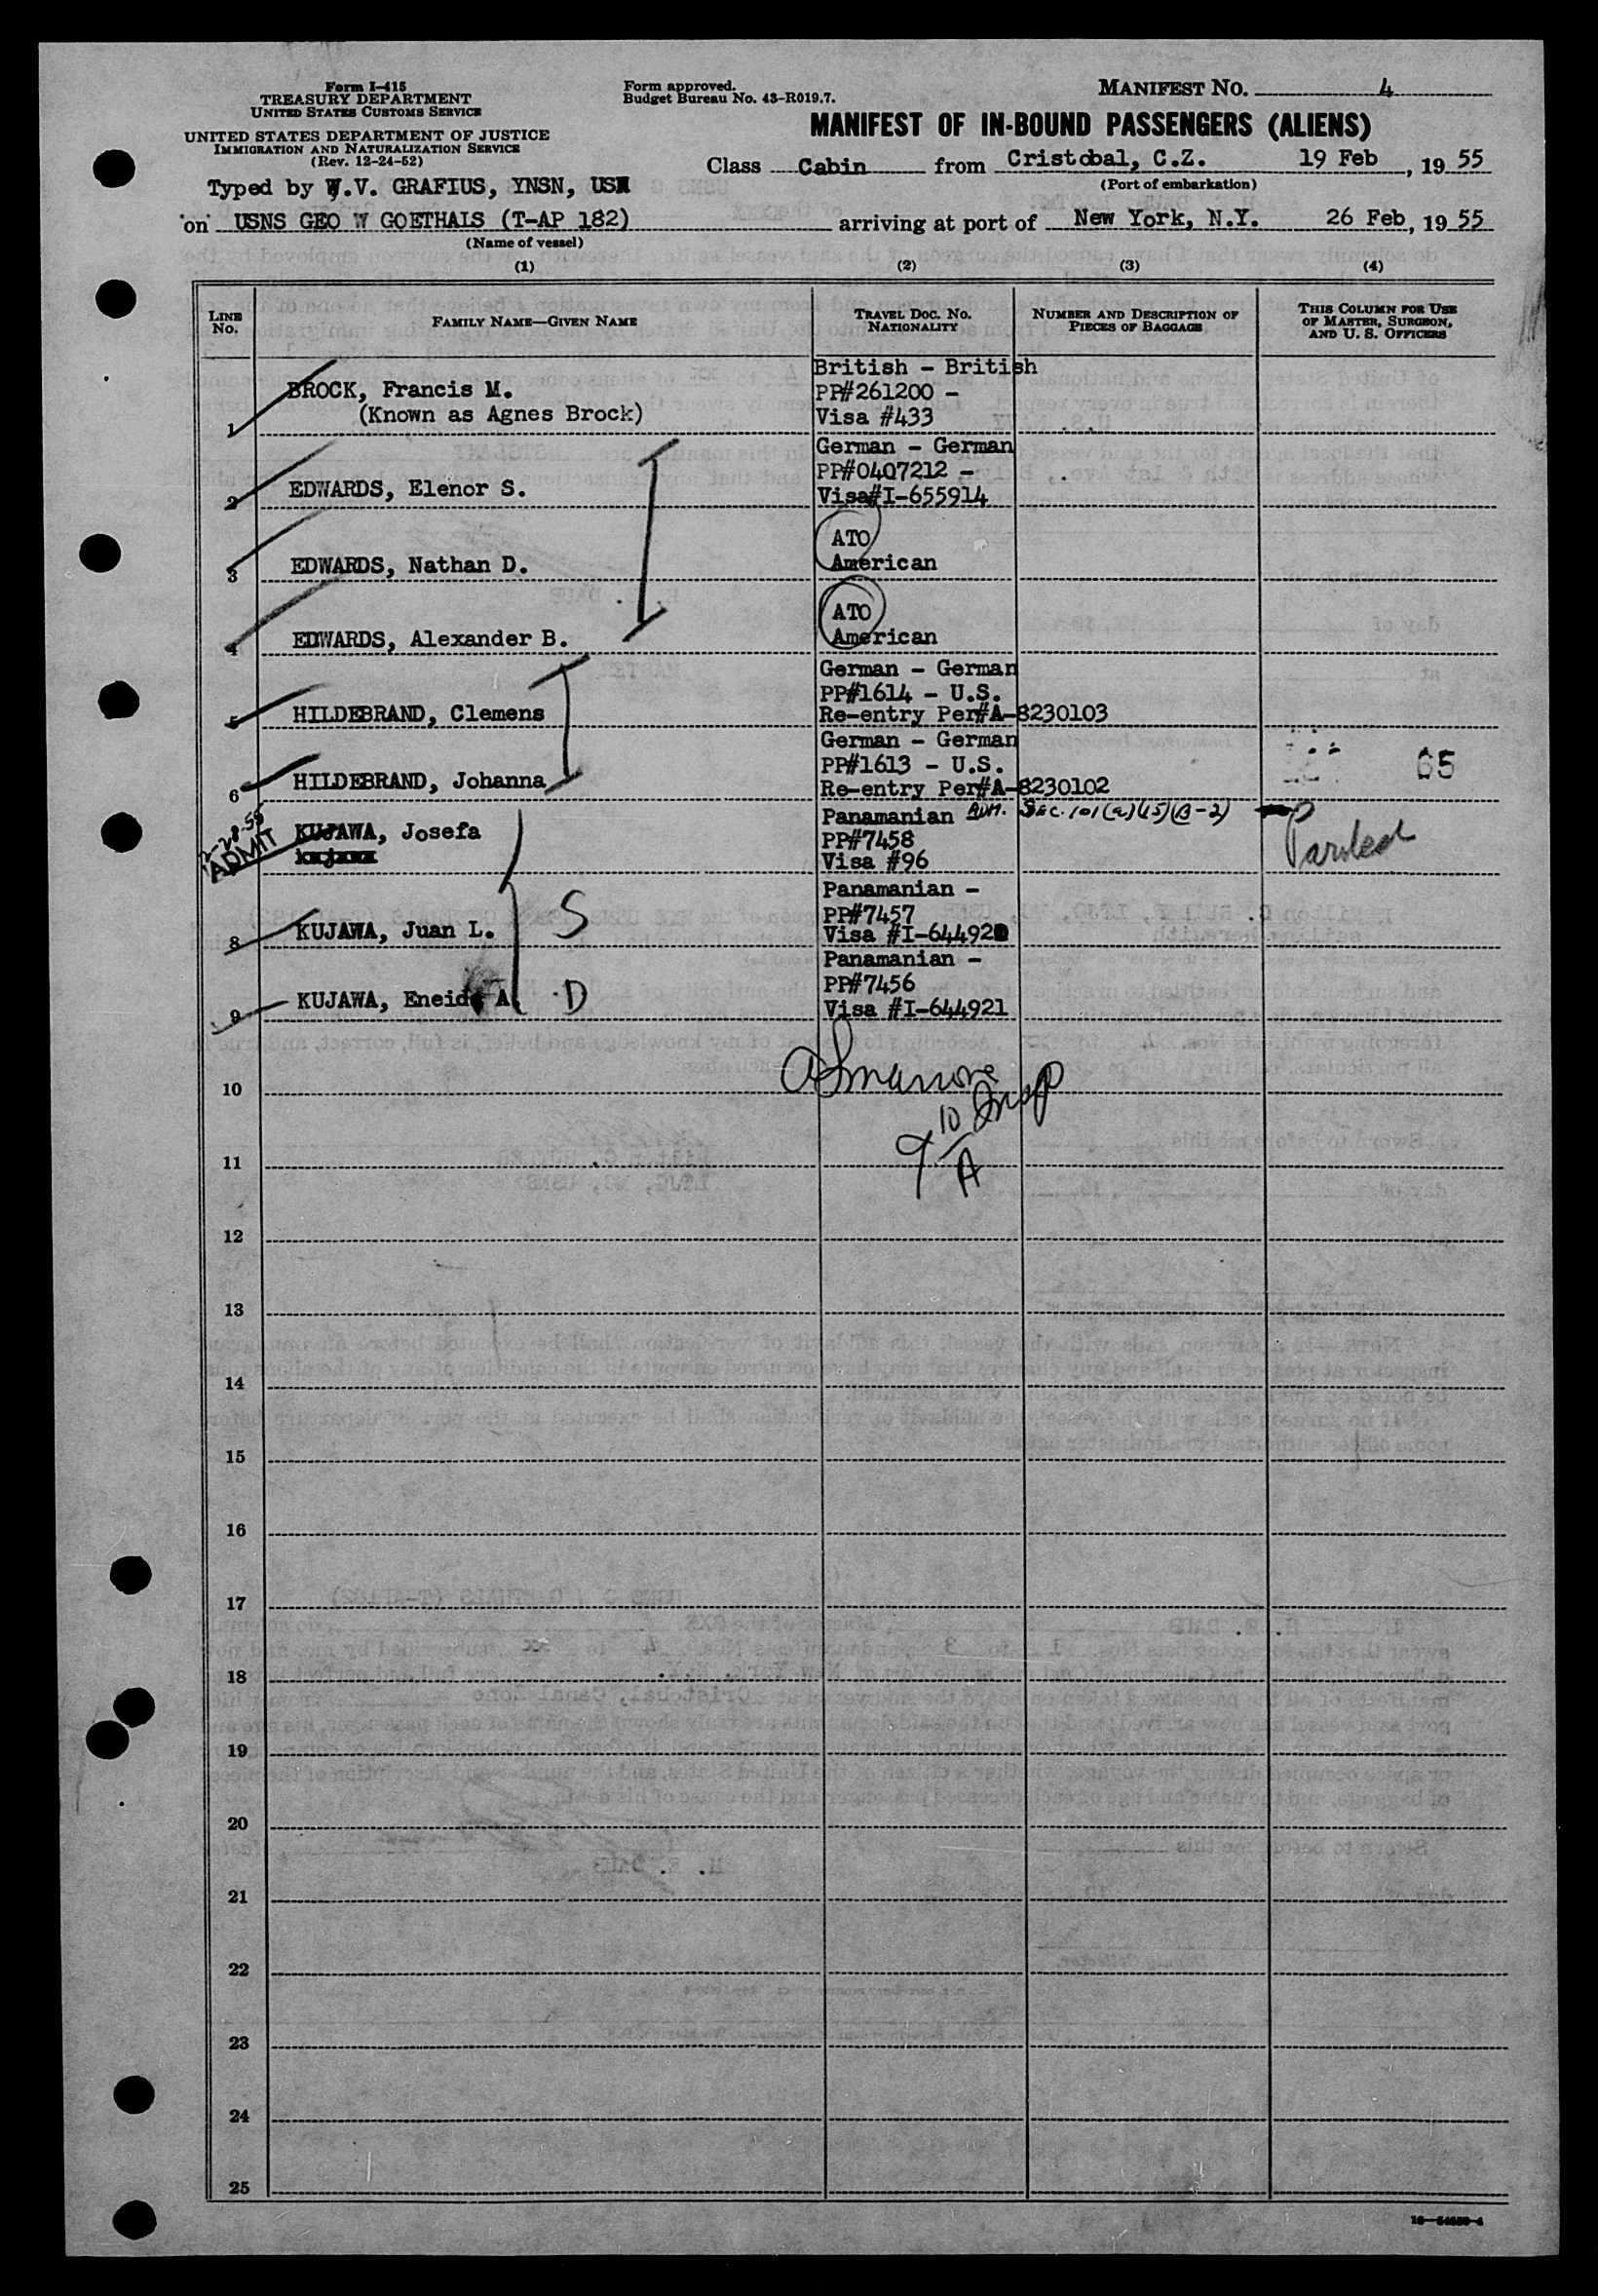 Form I-415
TREASURY DEPARTMENT
UNITED STATES CUSTOMS SERVICE
UNITED STATES DEPARTMENT OF JUSTICE
IMMIGRATION AND NATURALIZATION SERVICE
(Rev. 12-24-52)
Form approved.
Budget Bureau No. 43-R019.7.
MANIFEST NO. 4
MANIFEST OF IN-BOUND PASSENGERS (ALIENS)
Class Cabin from Cristobal, C.Z. 19 Feb, 19 55
(Port of embarkation)
Typed by W.V. GRAFIUS, YNSN, USN
on USNS GEO W GOETHALS (T-AP 182) arriving at port of New York, N.Y. 26 Feb, 19 55
(Name of vessel)
(1) (2) (3) (4)
LINE No. FAMILY NAME—GIVEN NAME TRAVEL DOC. NO. NATIONALITY NUMBER AND DESCRIPTION OF PIECES OF BAGGAGE THIS COLUMN FOR USE OF MASTER, SURGEON, AND U. S. OFFICERS
British - British
BROCK, Francis M. PP#261200 -
1 (Known as Agnes Brock) Visa #433
German - German
PP#0407212 -
2 EDWARDS, Elenor S. Visa#I-655914
ATO
3 EDWARDS, Nathan D. American
ATO
4 EDWARDS, Alexander B. American
German - German
PP#1614 - U.S.
5 HILDEBRAND, Clemens Re-entry Per#A-8230103
German - German
PP#1613 - U.S. 65
6 HILDEBRAND, Johanna Re-entry Per#A-8230102
2-28-55 ADMIT KUJAWA, Josefa Panamanian ADM. SEC. 101(a)(15)(B-2) Paroled
PP#7458
Visa #96
Panamanian -
PP#7457
8 KUJAWA, Juan L. S Visa #I-644920
Panamanian -
PP#7456
9 KUJAWA, Eneida A. D Visa #I-644921
10
Insp
10
9 A
11
12
13
14
15
16
17
18
19
20
21
22
23
24
25